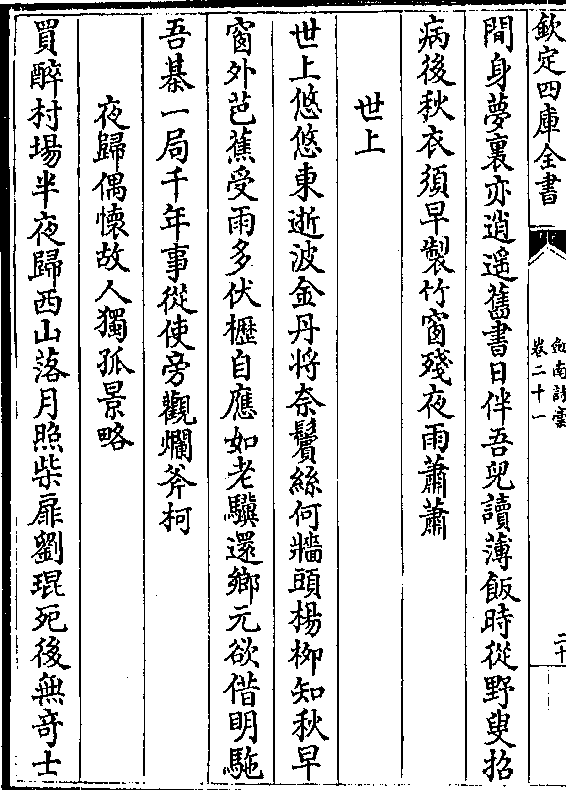 欽定四庫全書
劍南詩藁
卷二十一
二十
間身夢裏亦逍遙舊書日伴吾兒讀薄飯時從野叟招
病後秋衣須早製竹窗殘夜雨蕭蕭
世上
世上悠悠東逝波金丹將奈鬢絲何牆頭楊栁知秋早
窗外芭蕉受雨多伏櫪自應如老驥還鄉元欲借明駞
吾棊一局千年事從使旁觀爛斧柯
夜歸偶懷故人獨孤景略
買醉村場半夜歸西山落月照柴扉劉琨死後無竒士